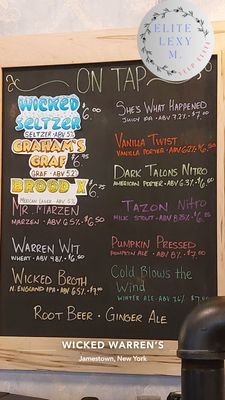 ELITE
LEXY
M.
YELP ELITE
ON TAP
WICKED
SELTZER
SELTZER · ABV 5%
$6.00
GRAHAM'S
GRAF
GRAF · ABV 5.2%
$6.75
BROOD X
MEXICAN LAGER · ABV 5%
MR. MARZEN
MARZEN · ABV 6.5% · $6.50
WARREN WIT
WHEAT · ABV 4.8% · $6.00
WICKED BROTH
N. ENGLAND IPA · ABV 6.5% · $7.00
SHE'S WHAT HAPPENED
JUICY IPA · ABV 7.2% · $7.00
VANILLA TWIST
VANILLA PORTER · ABV 6.2% · $6.50
DARK TALONS NITRO
AMERICAN PORTER · ABV 6.3% · $6.00
TAZON NITRO
MILK STOUT · ABV
PUMPKIN PRESSED
PUMPKIN ALE · ABV
COLD BLOWS THE
WIND
WINTER ALE · ABV 7.6%
ROOT BEER · GINGER ALE
WICKED WARREN'S
Jamestown, New York